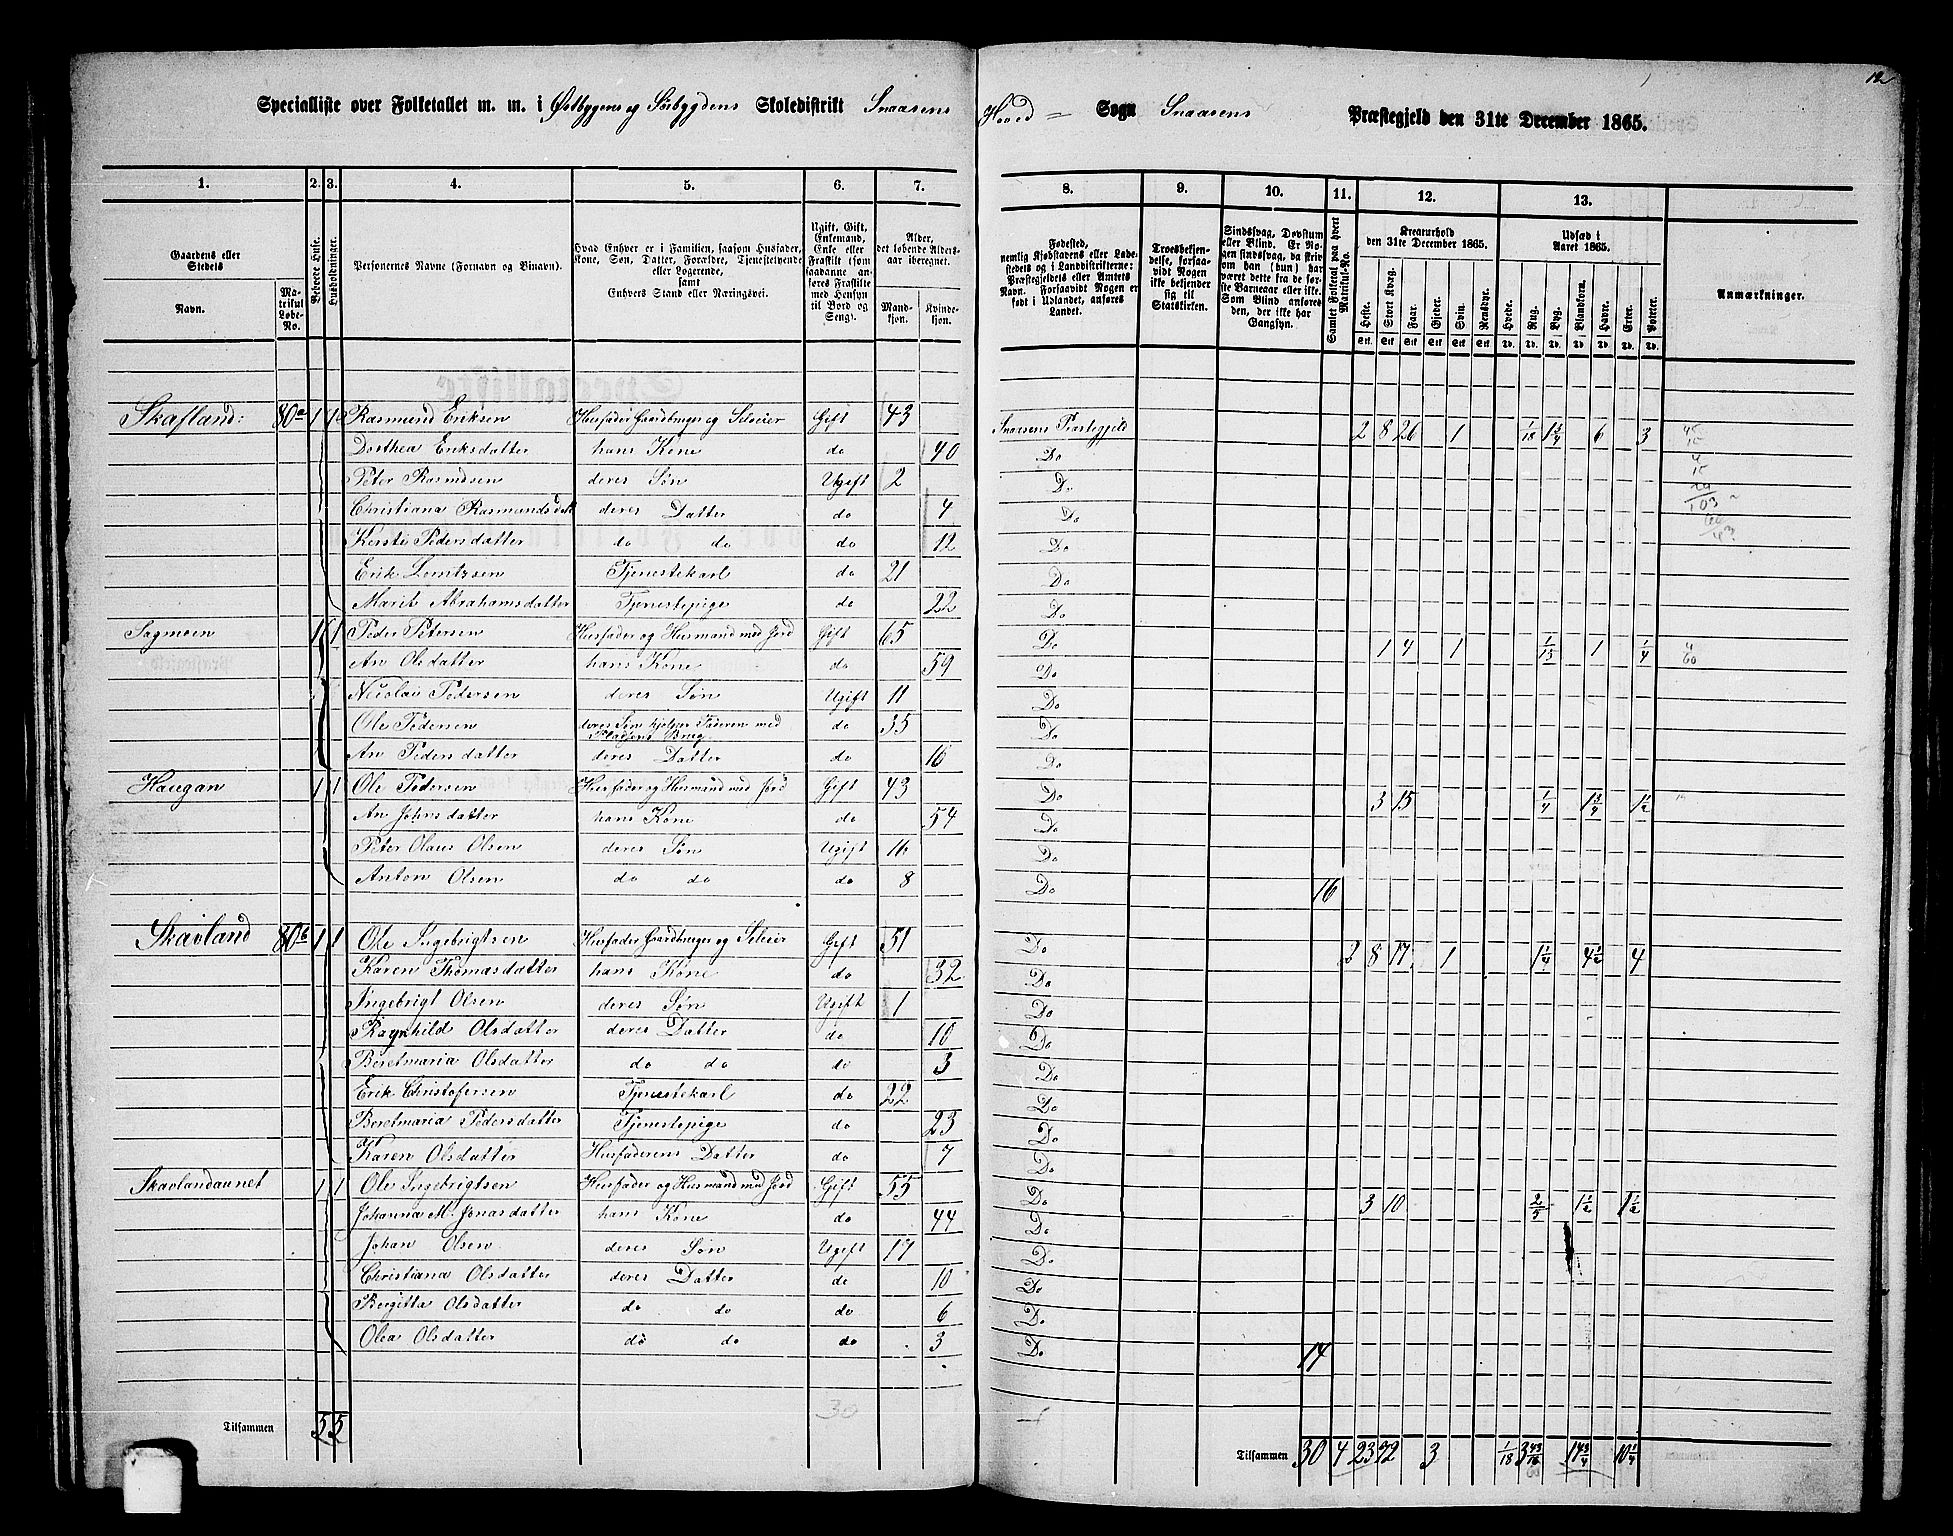 12
Specialliste over Folketallet m. m. i Østbygens og Sörbygdens Skoledistrikt Snaasens Hoved = Sogn Snaasens Præstegjeld den 31te December 1865.
1. 2. 3. 4. 5. 6. 7. 8. 9. 10. 11. 12. 13.
Gaardens eller Stedets
Navn.
Matrikul Løbe-No.
Beboede Huse.
Husholdninger.
Personernes Navne (Fornavn og Tilnavn).
Hvad Enhver er i Familien, saasom Husfader, Kone, Søn, Datter, Forældre, Tjenestetyende eller Logerende, samt Enhvers Stand eller Næringsvei.
Ugift, Gift, Enkemand, Enke eller Fraskilt (som saadanne anføres Fraskilte med Hensyn til Bord og Seng).
Alder, det løbende Aldersaar iberegnet.
Mandkjøn. Kvindekjøn.
Fødested, nemlig Kjøbstadens eller Ladestedets og i Landdistrikterne: Præstegjeldets eller Amtets Navn. Forsaavidt Nogen er født i Udlandet, anføres Landet.
Troesbekjendelse, forsaavidt Nogen ikke bekjender sig til Statskirken.
Sindssvag, Døvstum eller Blind. Er Nogen sindssvag, da skrives om han (hun) har været dette fra de første Barneaar eller ikke. Som Blind anføres den, der ikke har Gangsyn.
Samlet Folketal paa hvert Matrikul-No.
Kreaturhold den 31te December 1865.
Heste. Stort Kvæg. Faar. Gjeder. Svin. Rensdyr.
Udsæd i Aaret 1865.
Hvede. Rug. Byg. Blandkorn. Havre. Erter. Poteter.
Anmærkninger.
Skafland: 80a 1 1 Rasmund Eriksen Husfader Gaardbruger og Seleier Gift 43 Snaasens Præstegjeld 2 8 26 1 1/18 1 3/4 6 3
Dorthea Eriksdatter hans Kone do 40 Do
Peter Rasmusen deres Søn Ugift 2 Do
Christiana Rasmundsdatt deres Datter do 4 Do
Kersti Pedersdatter do do do 12 Do
Erik Lorntzsen Tjenestekarl do 21 Do
Marit Abrahamsdatter Tjenestepige do 22 Do
Sagmoen 1 1 Peder Petersen Husfader og Husmand med Jord Gift 65 Do 1 4 1 1/13 1 1/4
An Olsdatter hans Kone do 59 Do
Nicolai Pedersen deres Søn Ugift 11 Do
Ole Pedersen deres Søn hjelper Faderen med Pladsens Brug do 35 Do
An Pedersdatter deres Datter do 16 Do
Haugan 1 1 Ole Pedersen Husfader og Husmand med Jord Gift 43 Do 3 15 1/4 1 3/4 1 1/2
An Johnsdatter hans Kone do 54 Do
Peter Olaus Olsen deres Søn Ugift 16 Do
Anton Olsen do do do 8 Do 16
Skavland 80b 1 1 Ole Ingebrigtsen Husfader Gaardbruger og Seleier Gift 51 Do 2 8 17 1 1 1/4 4 1/2 4
Karen Thomasdatter hans Kone do 32 Do
Ingebrigt Olsen deres Søn Ugift 1 Do
Ragnhild Olsdatter deres Datter do 10 Do
Beretmaria Olsdatter do do do 3 Do
Erik Christofersen Tjenestekarl do 22 Do
Beretmaria Pedersdatter Tjenestepige do 23 Do
Karen Olsdatter Husfaderens Datter do 7 Do
Skavlandaunet 1 1 Ole Ingebrigtsen Husfader og Husmand med Jord Gift 55 Do 3 10 2/5 1 1/2 1 1/2
Johanna M. Jonasdatter hans Kone do 44 Do
Johan Olsen deres Søn Ugift 17 Do
Christiana Olsdatter deres Datter do 10 Do
Bergitta Olsdatter do do do 6 Do
Olea Olsdatter do do do 3 Do 14
Tilsammen 5 5 30 Tilsammen 30 4 23 72 3 1/18 3 14 3/4 10 1/4